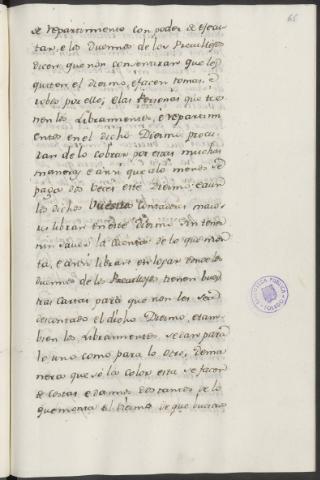 66
de repartimiento con poder de esecu-
tar, e los Dueños de los Previllejos
dicen que non consentiran que les
quiten el diezmo, e facen tomas, e
robos por ello, e las Personas que tie-
nen los Libramientos, e repartimi-
entos en el dicho Diezmo procu-
ran de lo cobrar por otras muchas
maneras e ansi que a lo menos se
paga dos veces este Diezmo: e aun
los dichos Vuestros Contadores maio-
res libran en este Diezmo sin tener
nin saver la Quantia de lo que mon-
ta, e ansi libran en logar donde los
Dueños de los Previllejos tienen buest-
tras Cartas para que non les sea
descontado el dicho Diezmo, e tam-
bien los Libramientos se dan para
lo uno como para lo otro, de ma-
nera que so la color esta se facen
de costas e daños dos tantos de lo
que monta el Diezmo de que
BIBLIOTECA PUBLICA
TOLEDO